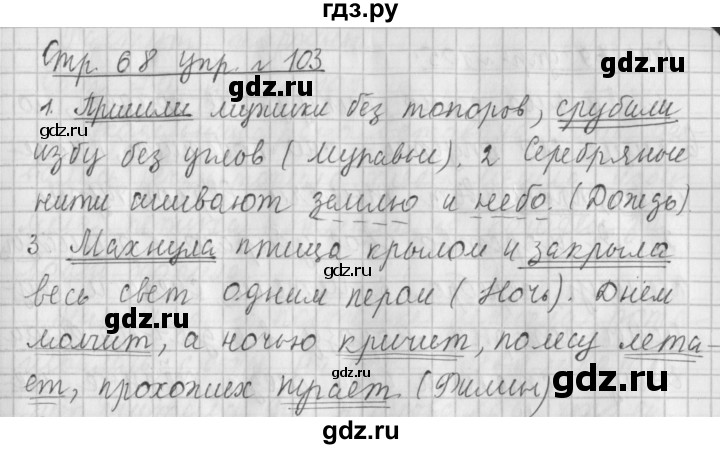 гдз.ру
Стр. 68 упр. № 103
gdz.ru
gdz.ru
1. Пришли мужики без топоров, срубили
избу без углов (Муравьи). 2 Серебряные
gdz.ru
gdz.ru
нити сшивают землю и небо. (Дождь).
3 Махнула птица крылом и закрыла
gdz.ru
gdz.ru
весь свет одним пером (Ночь). Днём
молчит, а ночью кричит, полесу лета-
gdz.ru
gdz.ru
ет, прохожих пугает. (Филин)
gdz.ru